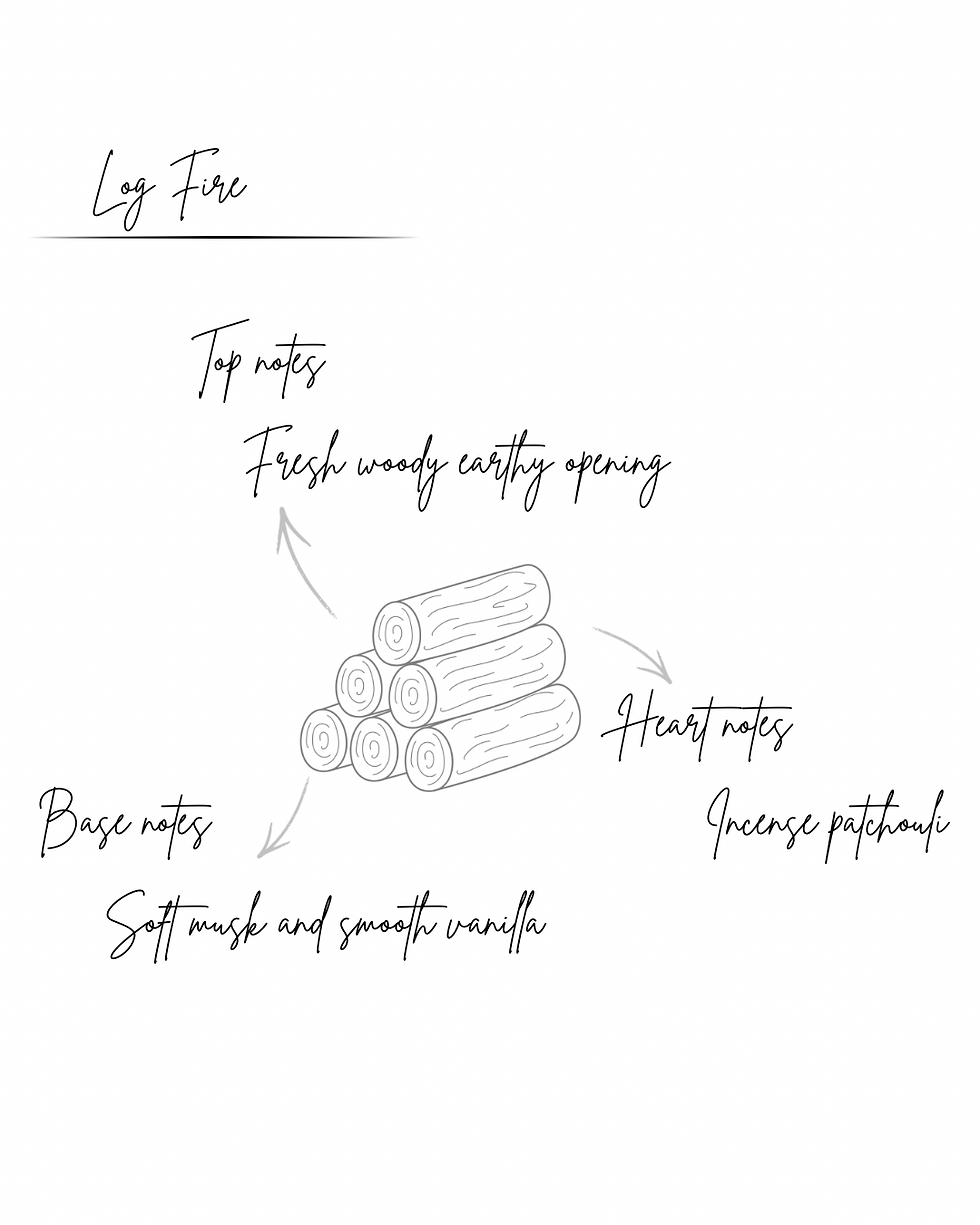 Log Fire
Top notes
Fresh woody earthy opening
Heart notes
Incense patchouli
Base notes
Soft musk and smooth vanilla